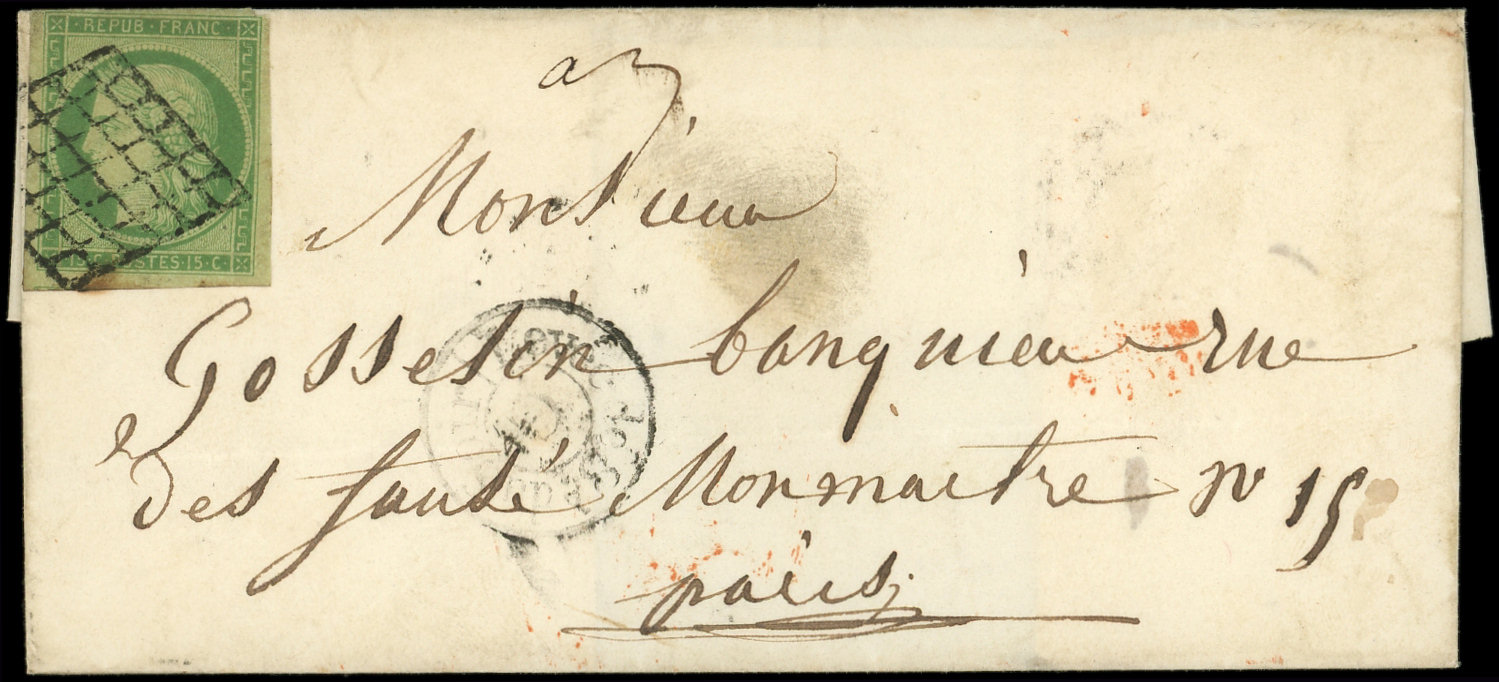 REPUB·FRANC·
15·C·POSTES·15·C·
a
Monsieur
Gosselin banquier rue
des faub Monmartre n° 15
paris